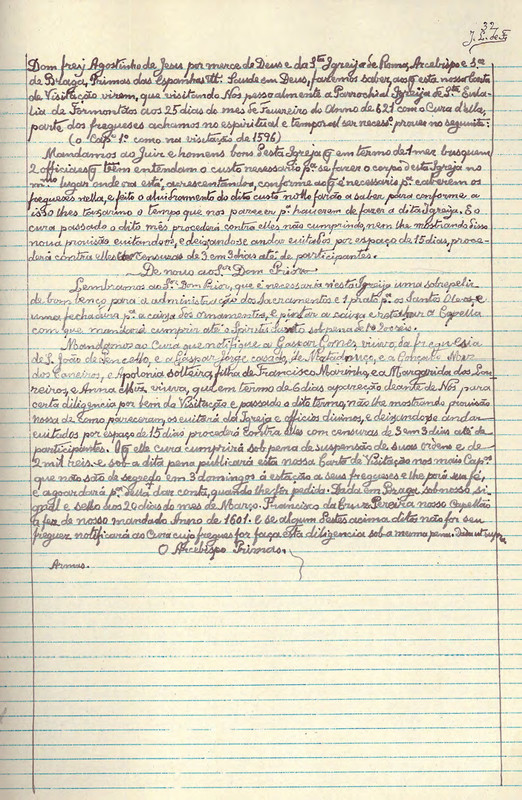 32
Dom frej Agostinho de Jesus por merce de Deus e da Sta Igreja de Roma, Arcebispo e Sr
de Braga, Primas das Espanhas etc. Saude em Deus, fazemos saber, aos q esta nossa Carta
de Visitação virem, que visitando Nos pessoalmente a Parrochial Igreja de Sta Eula-
lia de Fermontãos aos 25 dias do mes de Fevereiro do Anno de 621 com o Cura d'ella,
parte dos fregueses achamos no espiritual e temporal ser necesso prover no seguinte:
(o Capo 1º como na visitação de 1596)
Mandamos ao Juiz e homens bons desta Igreja q em termo de 1 mez busquem
2 officiaes q bem entendam o custo necessario pa se fazer o corpo desta Igreja no
mmo lugar onde ora está, acrescentando, conforme ao q é necessario pa caberem os
fregueses nella, e feito o alvidramento do dito custo nol-o farão a saber, para conforme a
isso lhes taxarmos o tempo que nos parecer pa haverem de fazer a dita Igreja. E o
cura passado o dito mês procederá contra elles não cumprindo, nem lhe mostrando disso
nova provisão evitando-os, e deixando-se andar evitados por espaço de 15 dias, proce-
derá contra elles com censuras de 3 em 3 dias até de participantes.
De novo ao Sr Dom Prior
Lembramos ao Sr Dom Prior, que é necessaria nesta Igreja uma sobrepeliz
de bom lenço, para a administração dos Sacramentos e 1 prato pa os Santos Oleos, e
uma fechadura pa a caixa dos ornamentos, e pintar a caixa e rotular a Capella
com que mandará cumprir até o Spiritu Santo sob pena de 10 cruz.es.
Mandamos ao Cura que notifique a Gaspar Gomez, viuvo, da freguesia
de S. João de Poncello, e a Gaspar Jorge casado, de e a Gonçalo Miz
dos Coneiros, e Apolonia solteira, filha de Francisco Marinho, e a Margarida dos Lou-
reiros, e Anna Miz viuva, que em termo de 6 dias apareção deante de Nós, para
certa diligencia por bem da Visitação e passado o dito termo, não lhe mostrando provisão
nossa de como pareceram, os evitará da Igreja e officios divinos, e deixando-se andar
evitados por espaço de 15 dias procederá contra elles com censuras de 3 em 3 dias até de
participantes. O q elle cura cumprirá sob pena de suspensão de suas ordens e de
2 mil reis. e sob a dita pena publicará esta nossa Carta de Visitação nos mais Capos
que não são de segredo em 3 domingos á estação a seus fregueses e lhe porá sua fé,
e a goardará pa della dar conta, quando lhe for pedida. Dada em Braga sob nosso si-
gnal e sello aos 20 dias do mes de Março. Francisco da Cruz Pereira nosso Capellão
a fez de nosso mandado Anno de 1601. E se algum destes acima ditos não for seu
freguez notificará ao Cura cujo freguez for faça esta diligencia sob a mesma pena. Data ut supra
O Arcebispo Primas.
Armas.